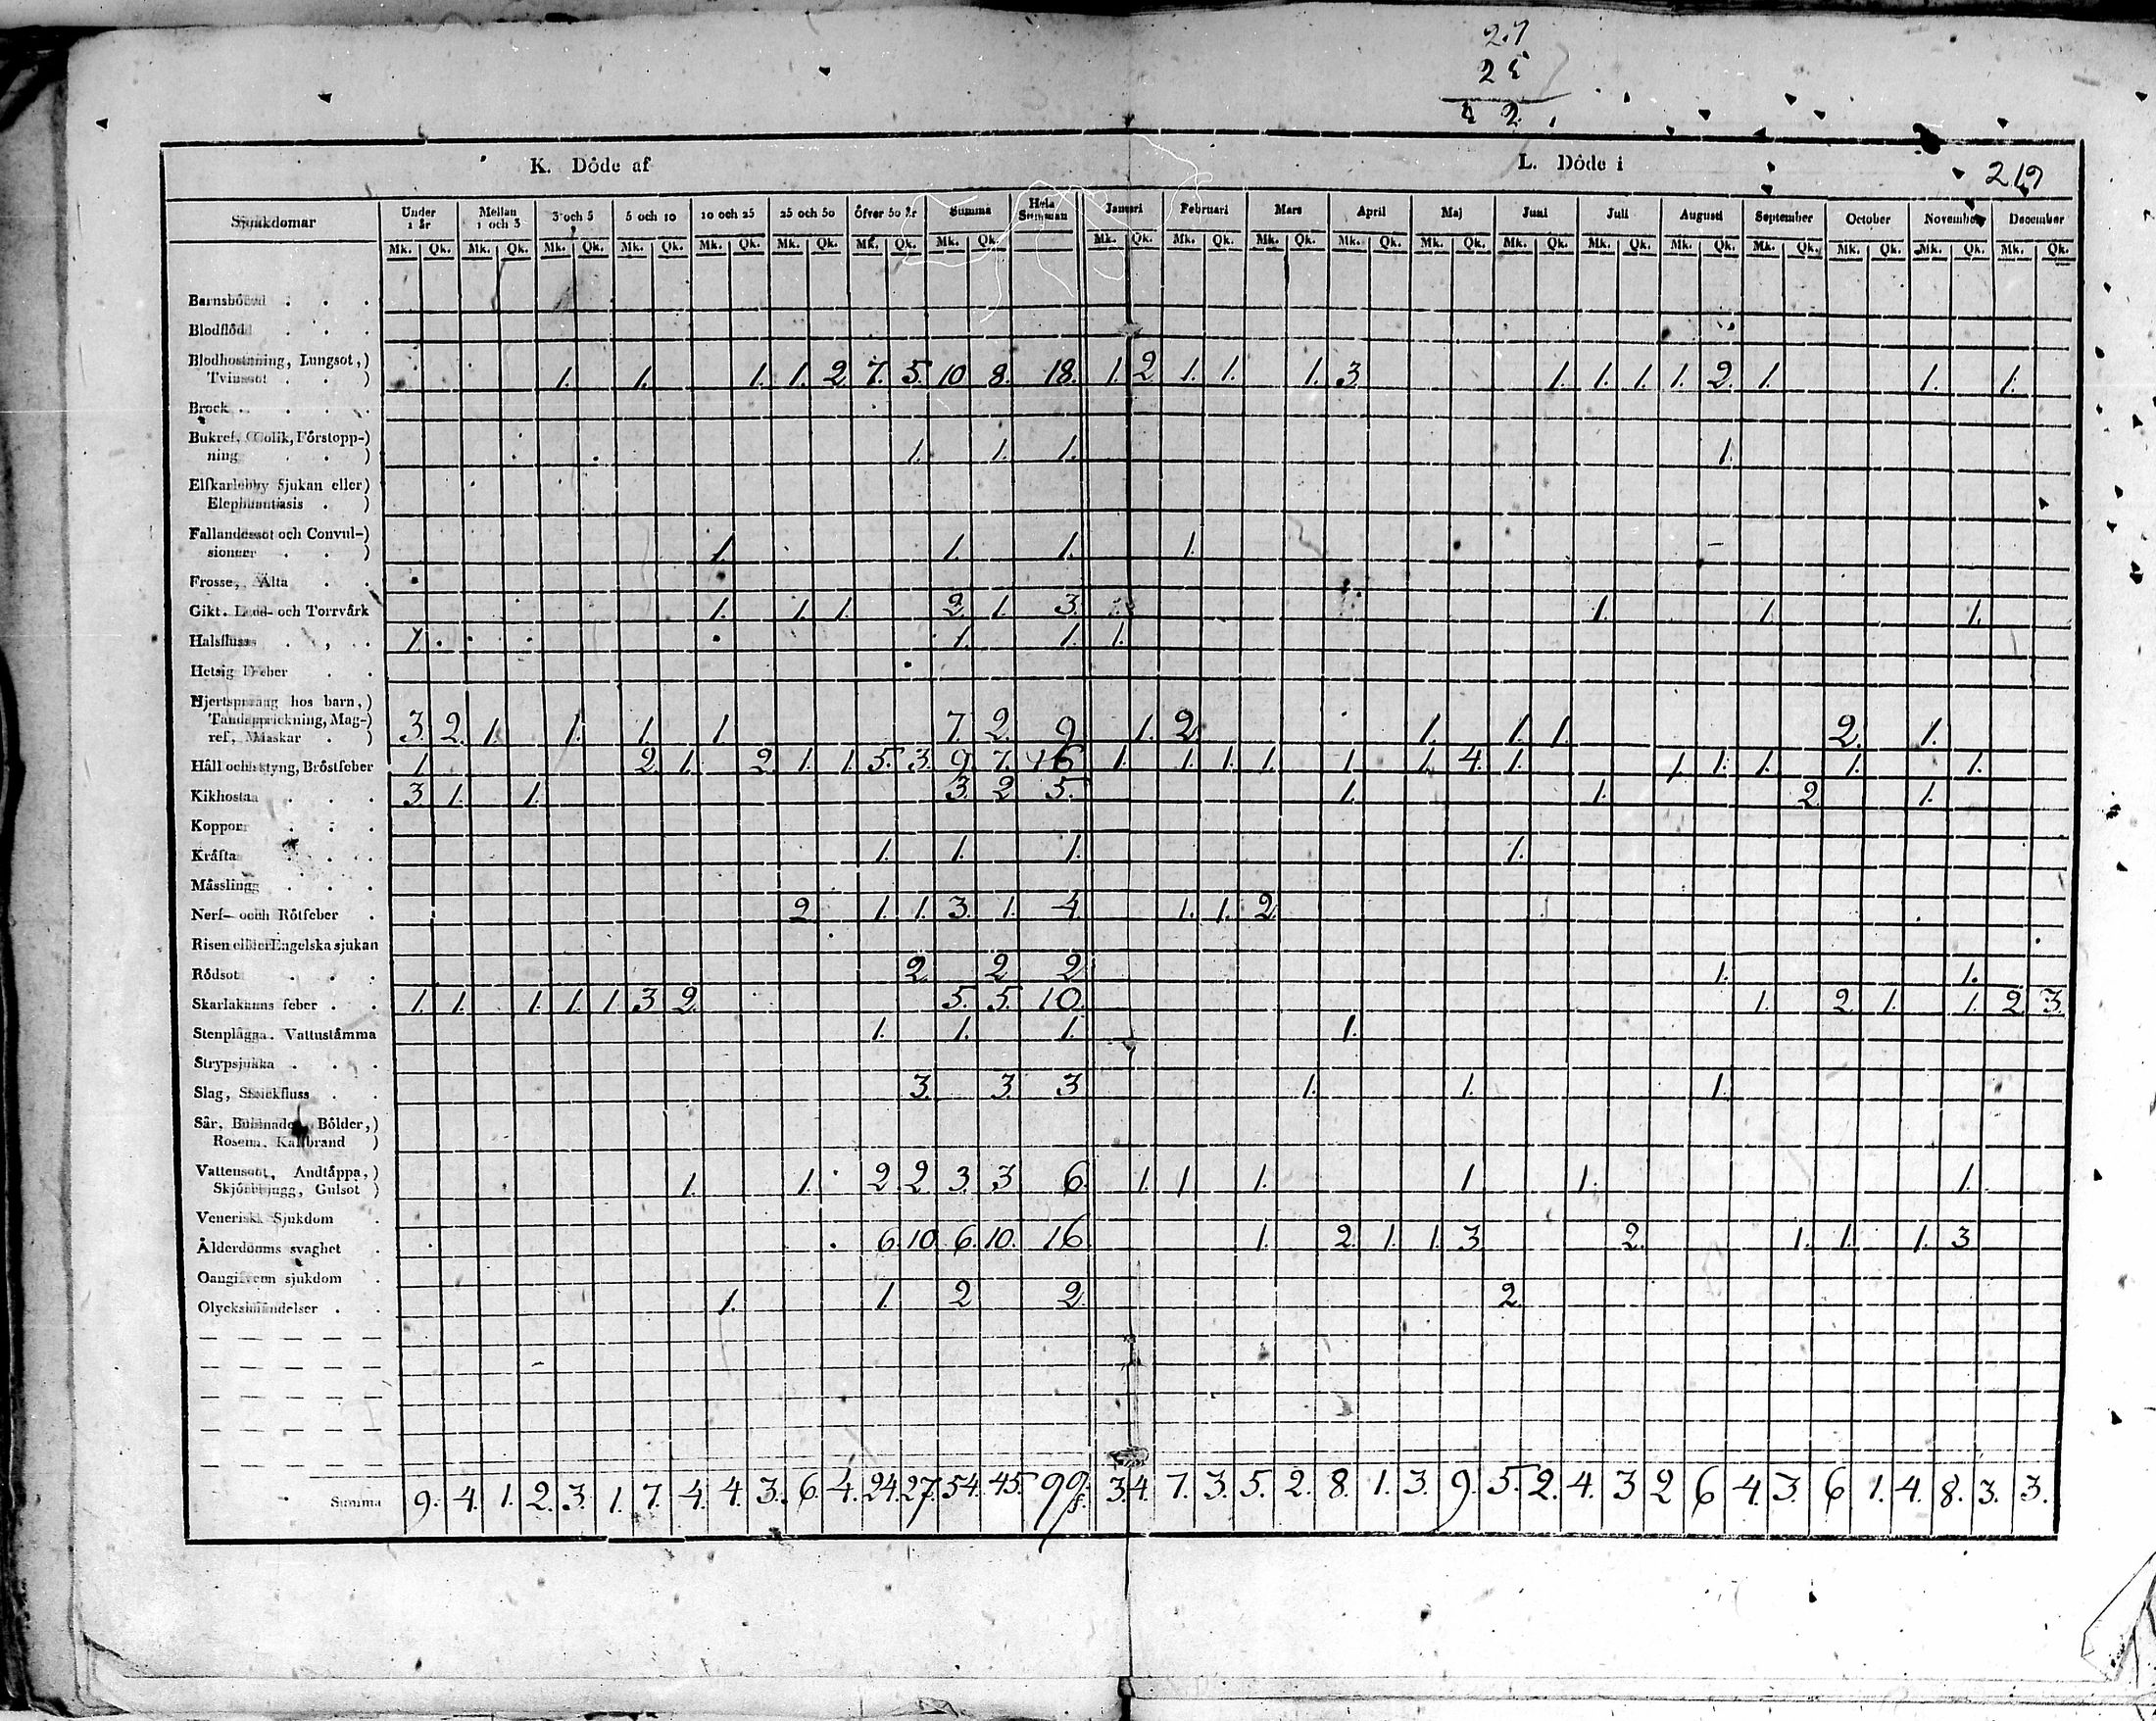 27
25
42
K. Döde af L. Döde i 219
Sjukdomar Under 1 år Mellan 1 och 3 3 och 5 5 och 10 10 och 25 25 och 50 Öfver 50 år Summa Hela Summan Januari Februari Mars April Maj Juni Juli Augusti September October November December
Mk. Qk. Mk. Qk. Mk. Qk. Mk. Qk. Mk. Qk. Mk. Qk. Mk. Qk. Mk. Qk. Mk. Qk. Mk. Qk. Mk. Qk. Mk. Qk. Mk. Qk. Mk. Qk. Mk. Qk. Mk. Qk. Mk. Qk. Mk. Qk. Mk. Qk. Mk. Qk.
Barnsbörd . . .
Blodflöd . . .
Blodhostning, Lungsot,)
Tvinsot . . ) 1. 1. 1. 1. 2 7. 5. 10 8. 18. 1. 2 1. 1. 1. 3. 1. 1. 1. 1. 2. 1. 1. 1.
Brock . . . . .
Bukref, Colik, Förstopp-)
ning . . ) 1. 1. 1. 1.
Elfkarleby Sjukan eller)
Elephantiasis . )
Fallandesot och Convul-)
sioner . . ) 1. 1. 1. 1.
Frosse, Älta . .
Gikt. Led- och Torrvärk 1. 1. 1. 2. 1. 3. 1. 1. 1.
Halsfluss . , . 1. 1. 1. 1.
Hetsig Feber . .
Hjertsprång hos barn,)
Tandsprickning, Mag-)
ref, Maskar . ) 3. 2. 1. 1. 1. 1. 7. 2. 9. 1. 2. 1. 1. 1. 2. 1.
Håll och styng, Bröstfeber 1. 2. 1. 2. 1. 1. 5. 3. 9. 7. 16 1. 1. 1. 1. 1. 1. 4. 1. 1. 1. 1. 1. 1.
Kikhosta . . . 3. 1. 1. 3. 2 5. 1. 1. 2. 1.
Koppor . : .
Kräfta . . . 1. 1. 1. 1.
Mässling . . .
Nerf- och Rötfeber . 2 1. 1. 3. 1. 4. 1. 1. 2.
Risen eller Engelska sjukan
Rödsot . . . 2. 2 2 1. 1.
Skarlakanns feber . . 1. 1. 1. 1. 1. 3. 2. 5. 5. 10. 1. 2. 1. 1. 2. 3.
Stenplåga. Vattustämma 1. 1. 1. 1.
Strypsjuka . . .
Slag, Stickfluss . . 3. 3. 3. 1. 1. 1.
Sår, Bulnader, Bölder,)
Rosen, Kallbrand )
Vattensot, Andtäppa,)
Skjörbjugg, Gulsot ) 1. 1. 2 2. 3. 3 6. 1. 1. 1. 1. 1. 1.
Venerisk Sjukdom .
Ålderdoms svaghet . 6. 10. 6. 10. 16. 1. 2. 1. 1. 3. 2. 1. 1. 1. 3.
Oangifven sjukdom .
Olyckshändelser . . 1. 1. 2 2. 2.
Summa 9. 4. 1. 2. 3. 1. 7. 4. 4. 3. 6. 4. 24. 27. 54. 45. 99. 3. 4. 7. 3. 5. 2. 8. 1. 3. 9. 5. 2. 4. 3 2 6 4. 3. 6 1. 4. 8. 3. 3.